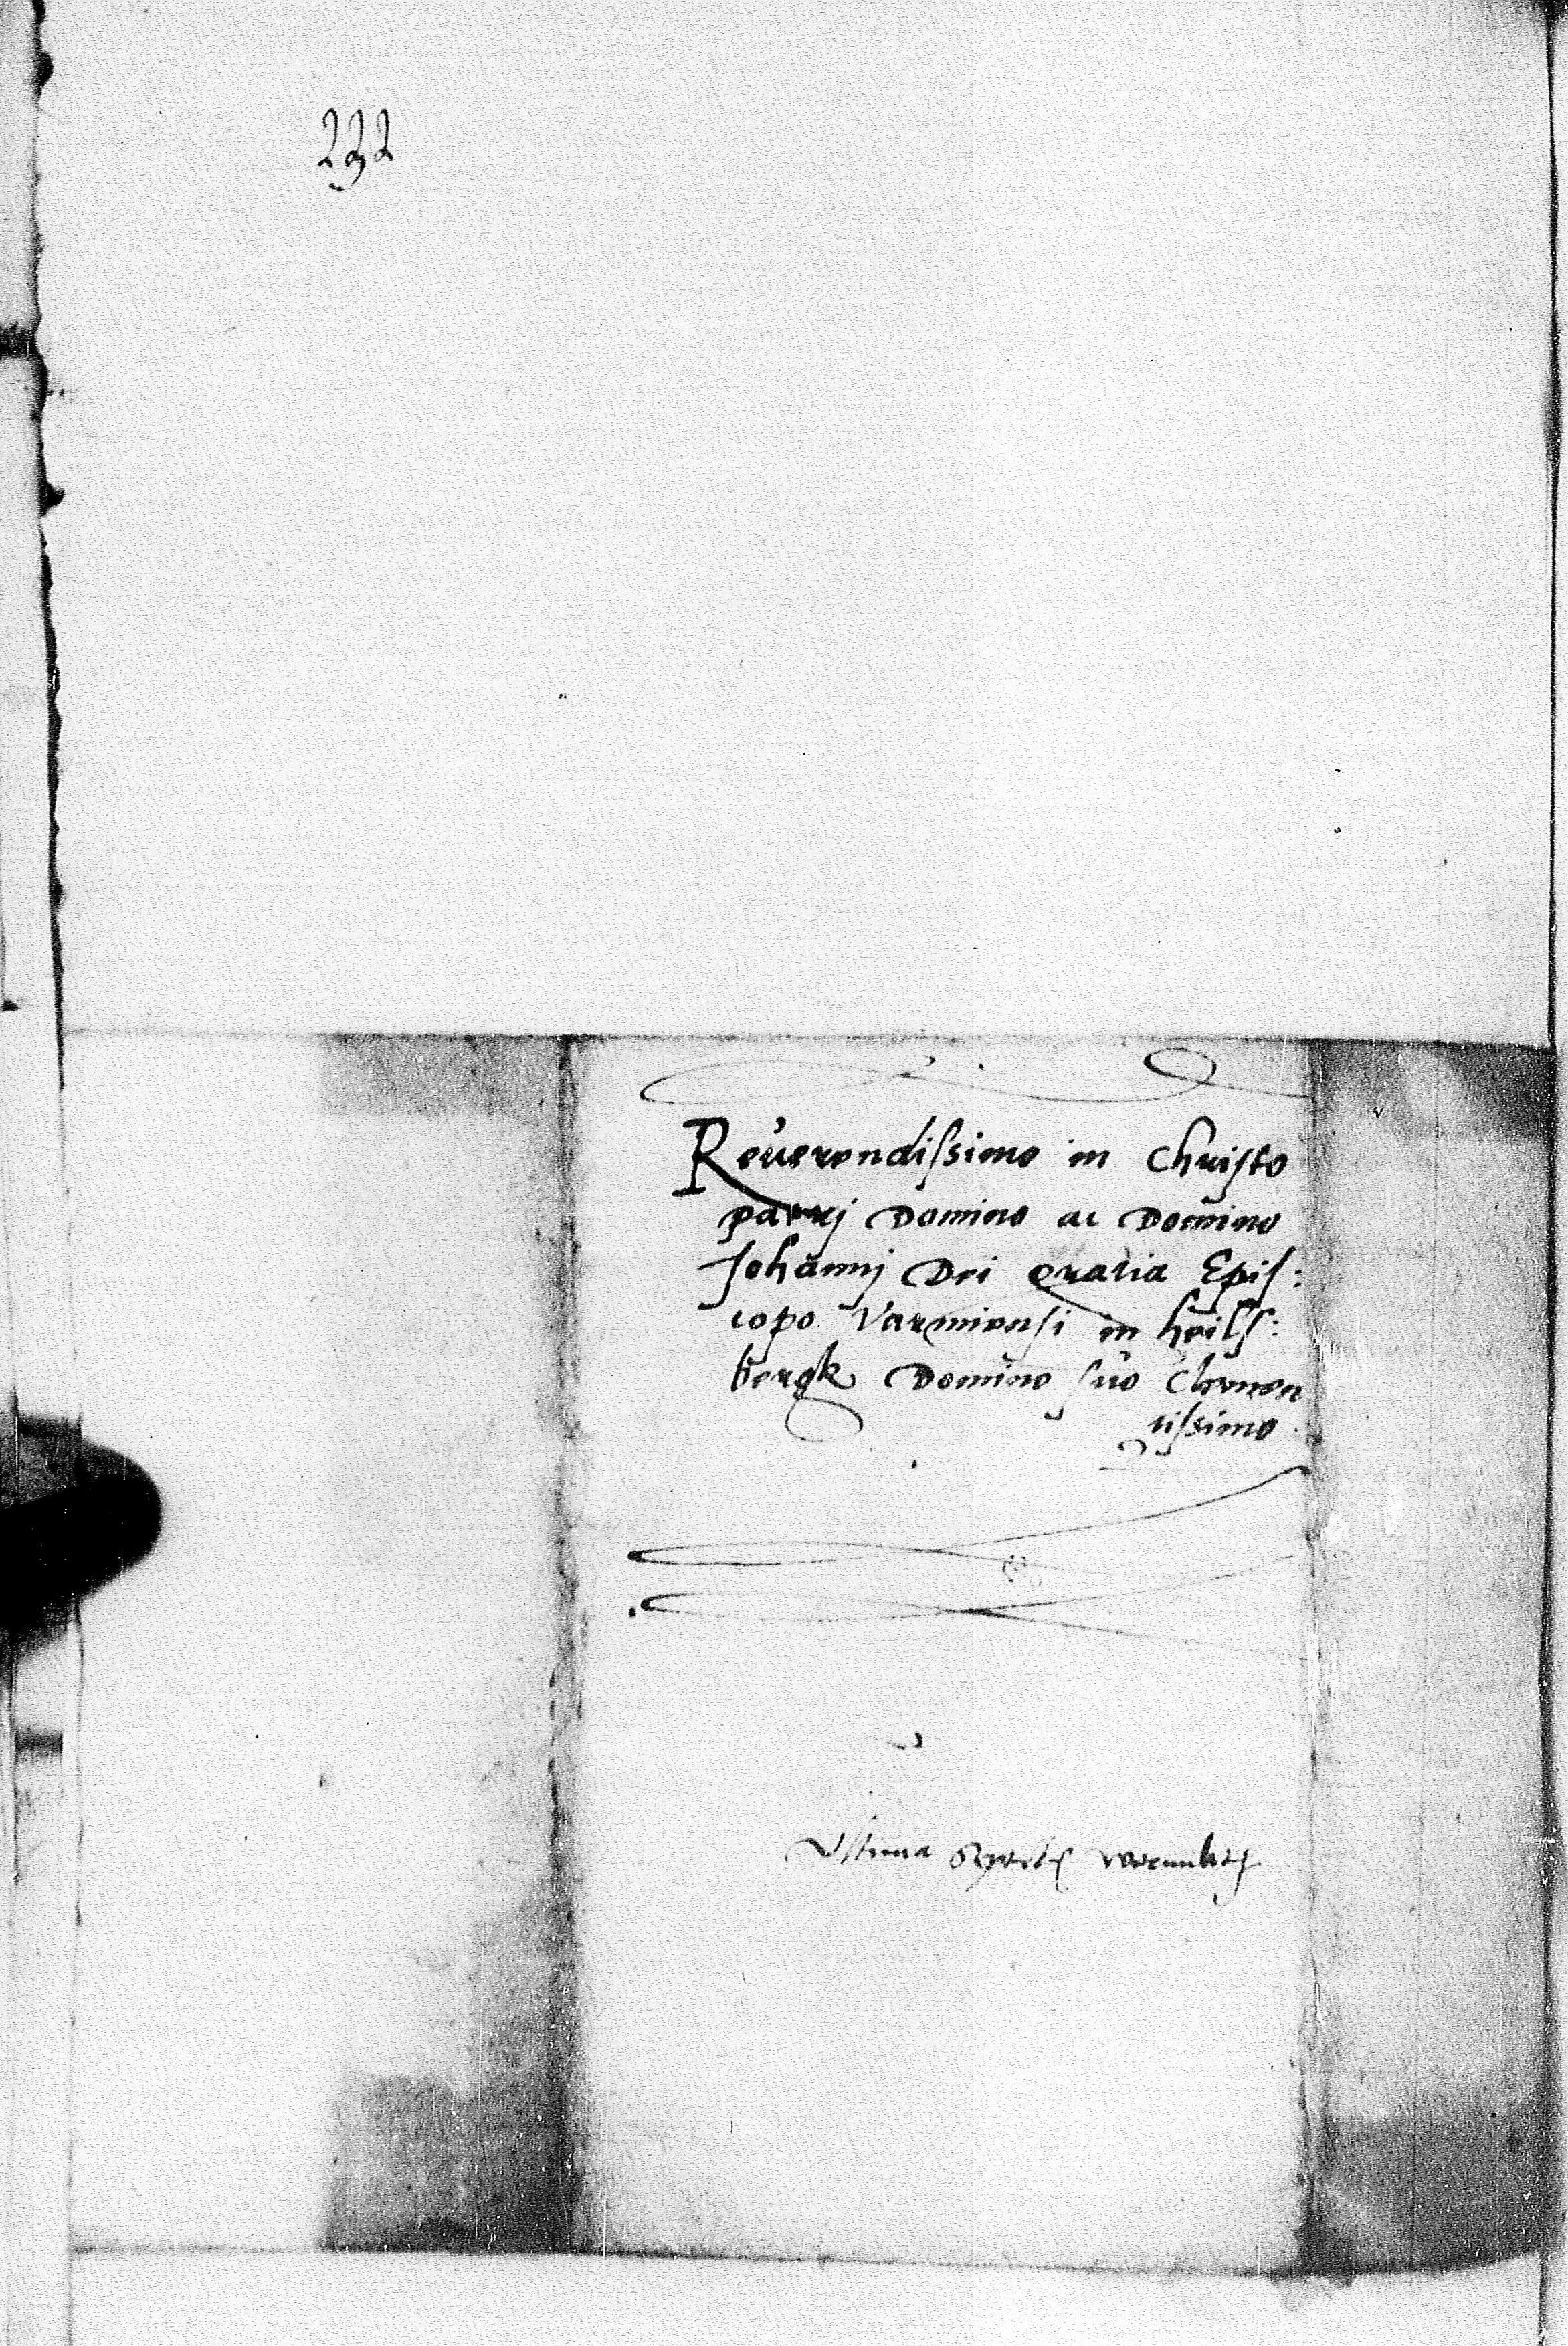 232
Reverendissimo in Christo
patrj Domino ac Domino
Johannj Dei gratia Epis:
copo Varmiensi in heils:
bergk Domino suo Clemen
tissimo
Ultima